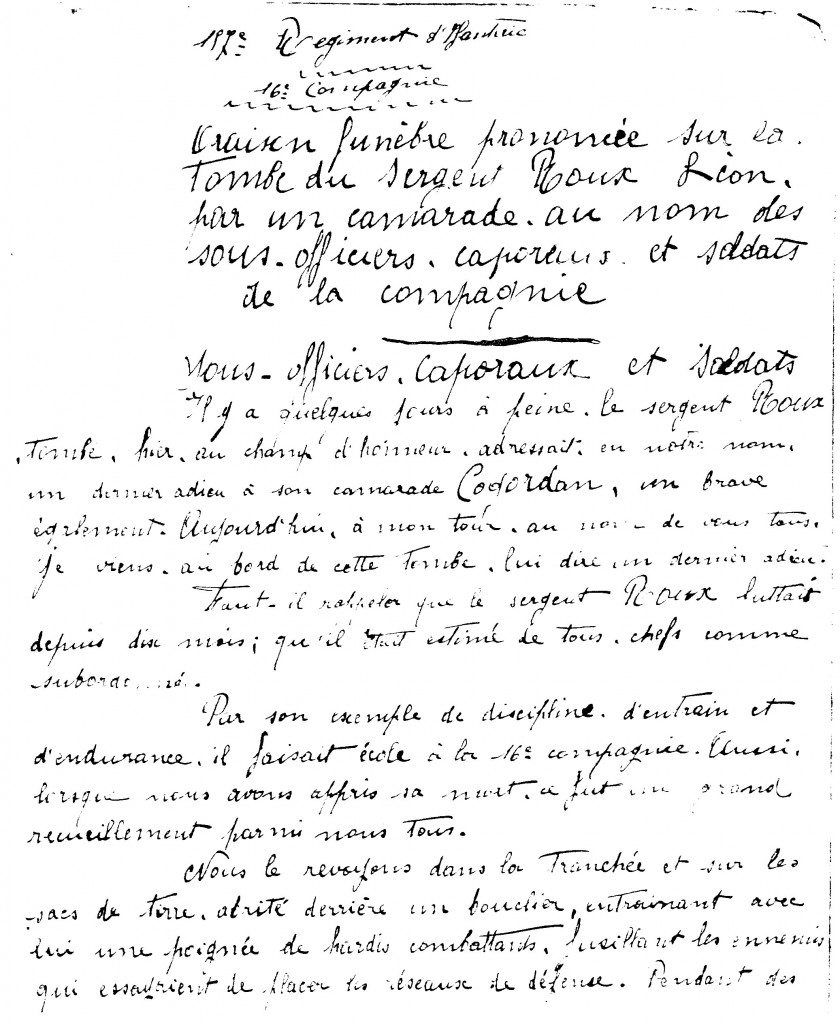 157e Regiment d'Infanterie
16e Compagnie
Oraison funèbre prononcée sur la
Tombe du Sergent Roux Léon.
par un camarade. au nom des
sous-officiers. caporaux. et soldats
de la compagnie
Sous-officiers. Caporaux et Soldats
Il y a quelques jours à peine. le sergent Roux
tombé. hier. au champ d'honneur. adressait. en notre nom.
un dernier adieu à son camarade Cogordan, un brave
également. Aujourd'hui, à mon tour. au nom de vous tous.
je viens. au bord de cette tombe. lui dire un dernier adieu.
Faut-il rappeler que le sergent Roux luttait
depuis dix mois; qu'il était estimé de tous. chefs comme
subordonnés.
Par son exemple de discipline. d'entrain et
d'endurance. il faisait école à la 16e compagnie. Aussi.
lorsque nous avons appris sa mort. ce fut un grand
recueillement parmi nous tous.
Nous le revoyons dans la Tranchée et sur les
sacs de terre. abrité derrière un bouclier, entrainant avec
lui une poignée de hardis combattants. fusillant les ennemis
qui essayaient de placer les réseaux de défense. Pendant des